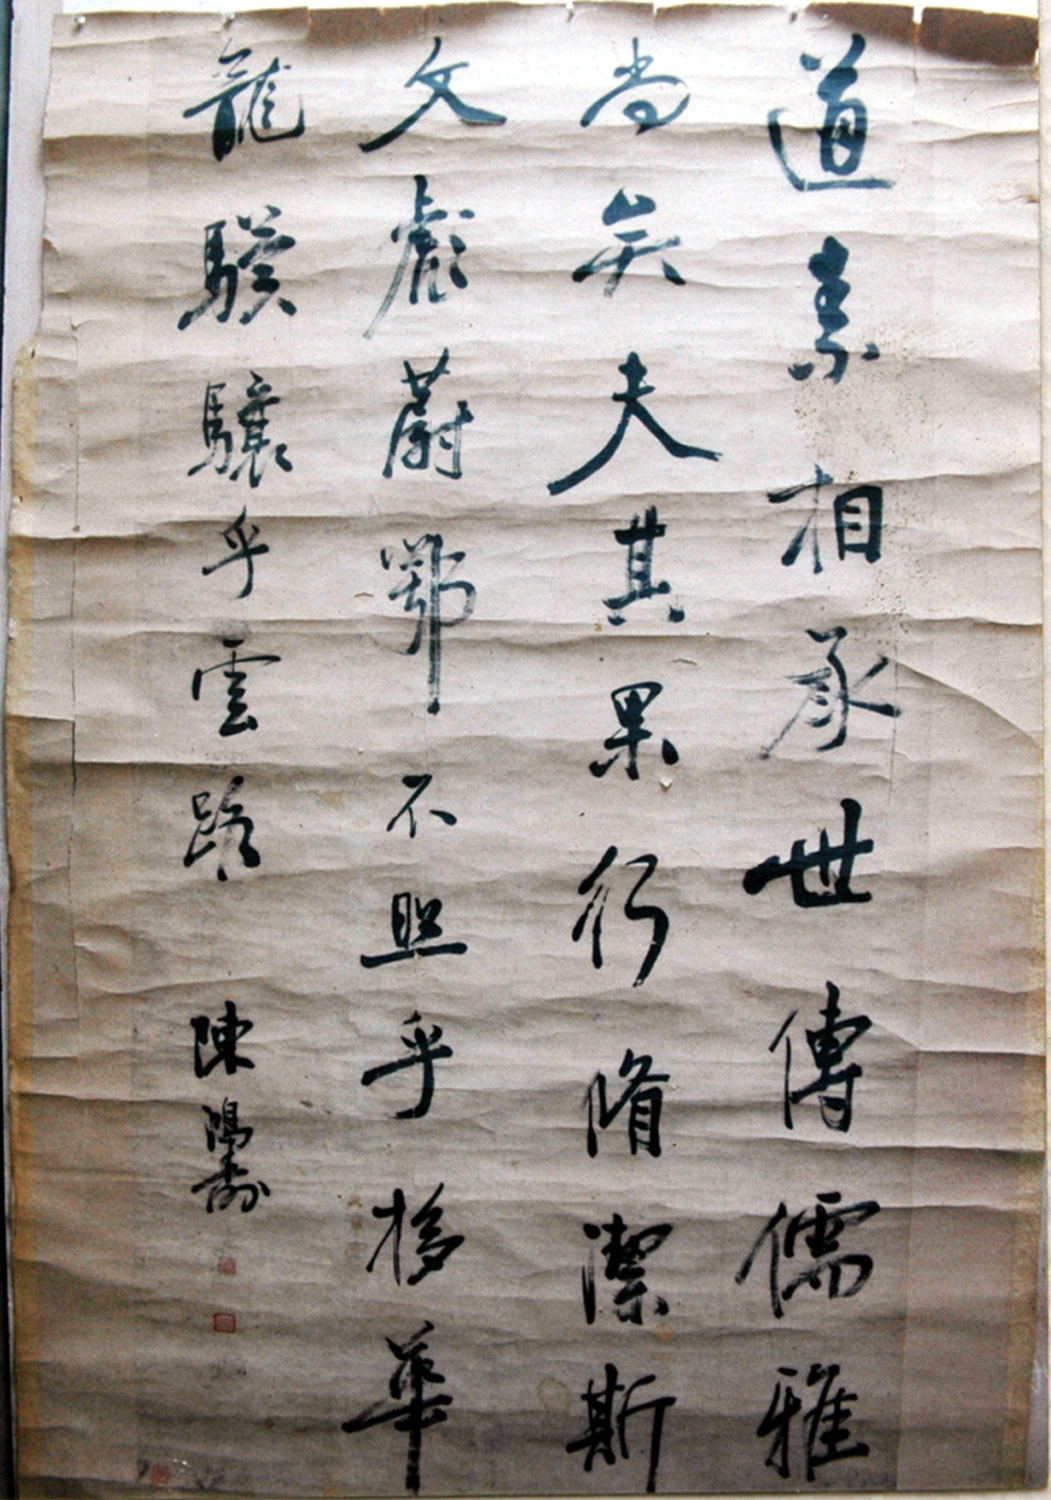 道素相承世傳儒雅
尚矣夫其果行脩潔斯
文彪蔚鄂不照乎移華
龍驥驤乎雲路 陳鴻壽